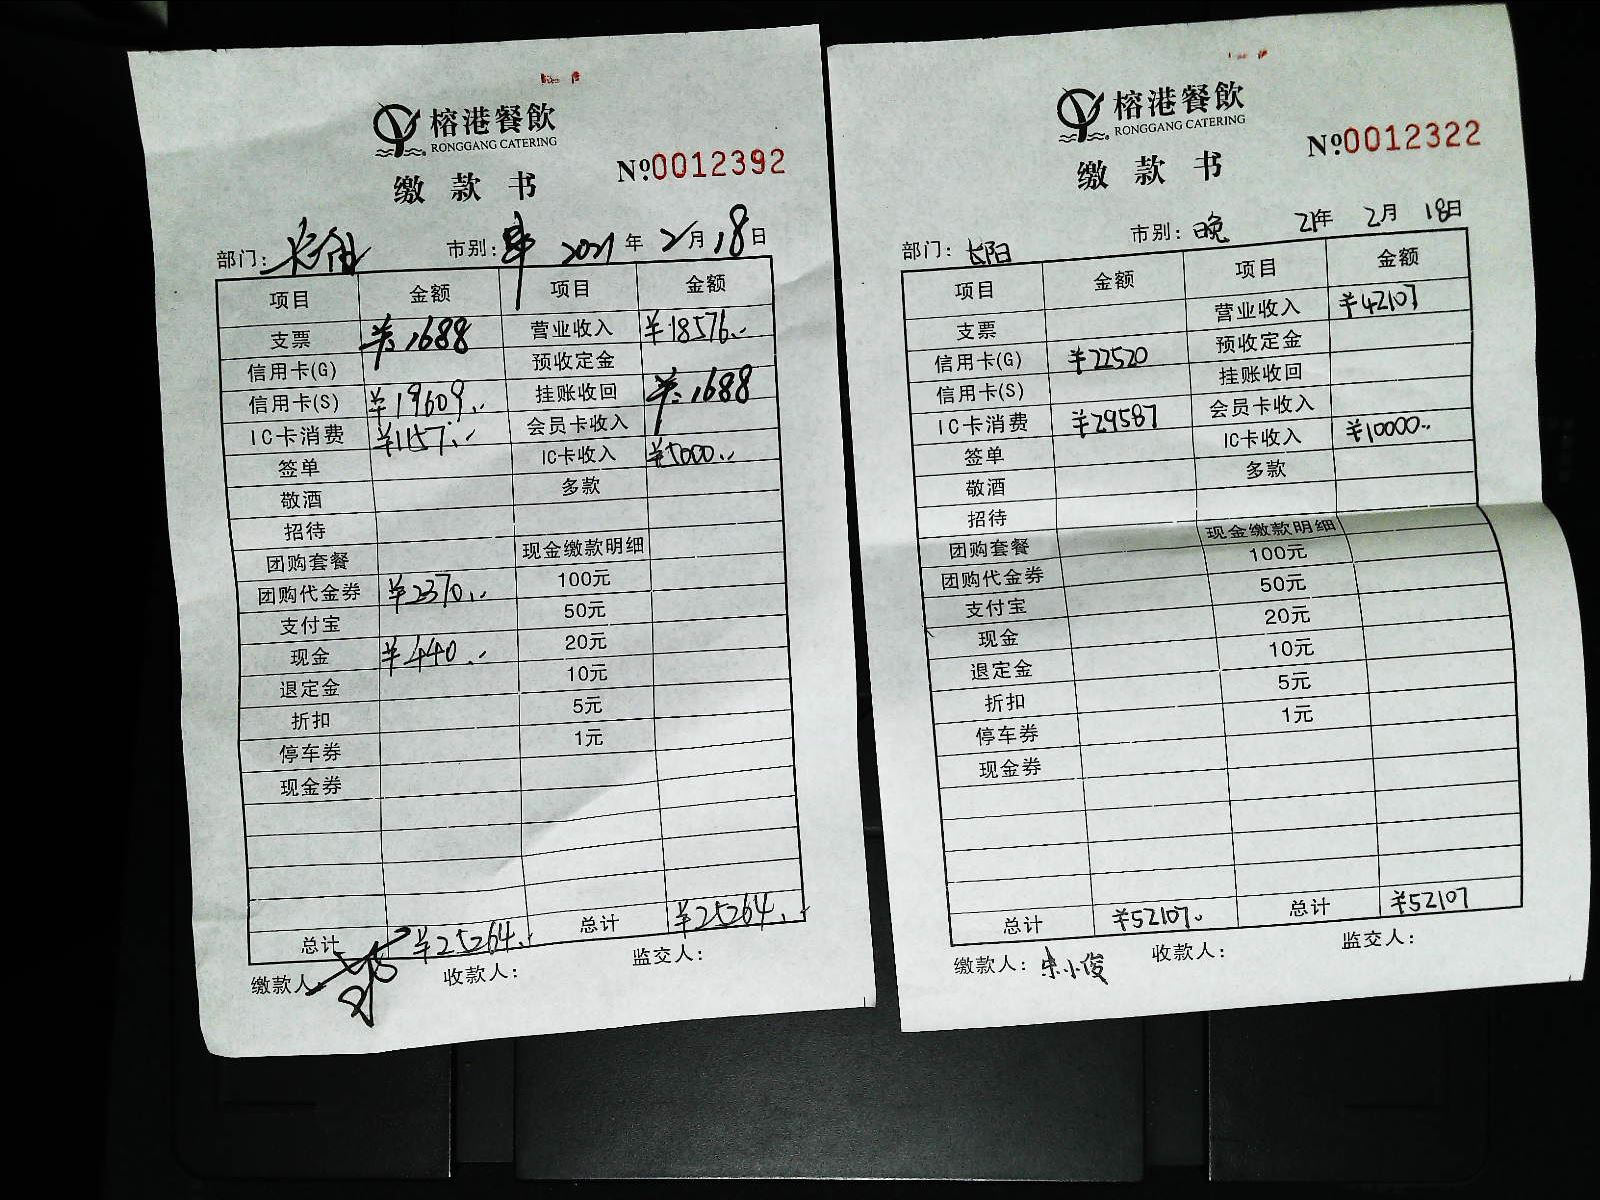 榕港餐飲
RONGGANG CATERING
缴款书
№0012392
部门： 市别： 2021年2月18日
项目 金额 项目 金额
支票 ¥:1688 营业收入 ¥18576.-
信用卡(G) 预收定金
信用卡(S) ¥19609.- 挂账收回 ¥:1688
IC卡消费 ¥1157.- 会员卡收入
签单 IC卡收入 ¥5000.-
敬酒 多款
招待
团购套餐 现金缴款明细
团购代金券 ¥2370.- 100元
支付宝 50元
现金 ¥440.- 20元
退定金 10元
折扣 5元
停车券 1元
现金券
总计 ¥25264.- 总计 ¥25264.-
缴款人： 收款人： 监交人：
榕港餐飲
RONGGANG CATERING
缴款书
№0012322
部门：长阳 市别：晚 21年2月18日
项目 金额 项目 金额
支票 营业收入 ¥42107
信用卡(G) ¥22520 预收定金
信用卡(S) 挂账收回
IC卡消费 ¥29587 会员卡收入
签单 IC卡收入 ¥10000.-
敬酒 多款
招待
团购套餐 现金缴款明细
团购代金券 100元
支付宝 50元
现金 20元
退定金 10元
折扣 5元
停车券 1元
现金券
总计 ¥52107. 总计 ¥52107
缴款人：宋小俊 收款人： 监交人：